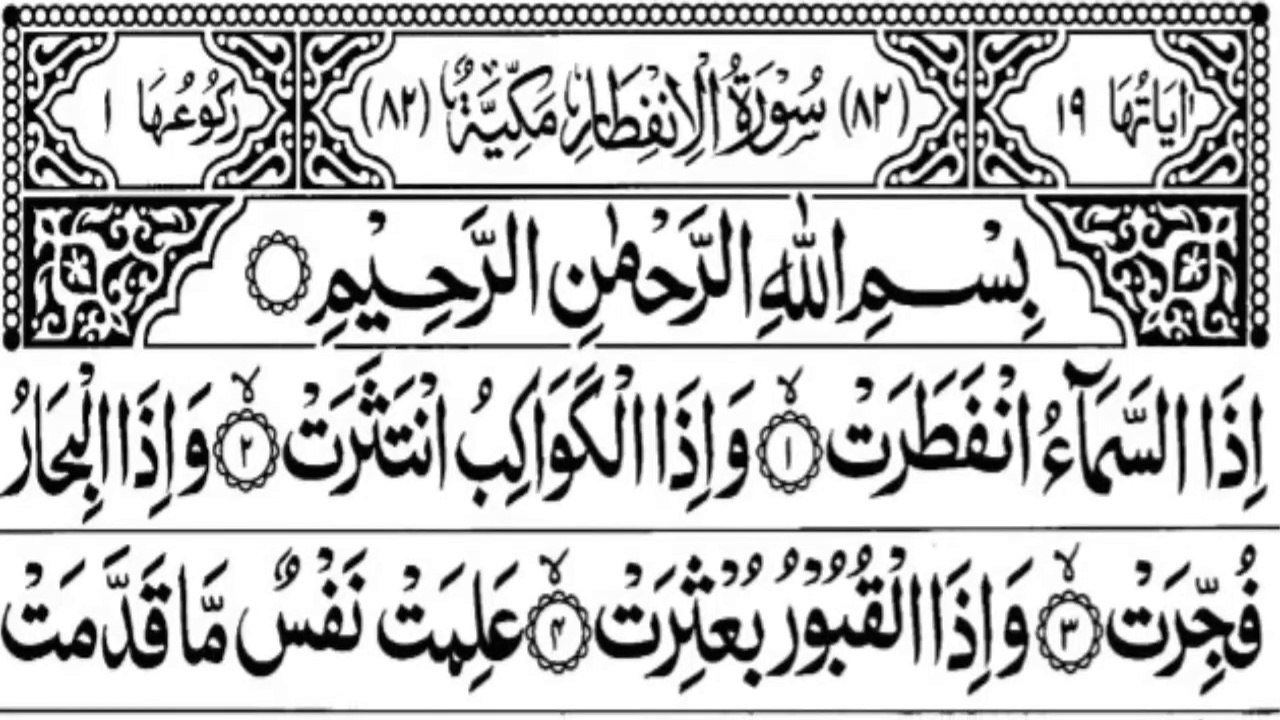 اٰيَاتُهَا ١٩ (٨٢) سُوْرَةُ الْاِنْفِطَارِ مَكِّيَّةٌ (٨٢) رُكُوْعُهَا ١
بِسْمِ اللّٰهِ الرَّحْمٰنِ الرَّحِيْمِ
اِذَا السَّمَآءُ انْفَطَرَتْ ۙ‏﴿۱﴾ وَاِذَا الْكَوَاكِبُ انْتَثَرَتْ ۙ‏﴿۲﴾ وَاِذَا الْبِحَارُ
فُجِّرَتْ ۙ‏﴿۳﴾ وَاِذَا الْقُبُوْرُ بُعْثِرَتْ ۙ‏﴿۴﴾ عَلِمَتْ نَفْسٌ مَّا قَدَّمَتْ